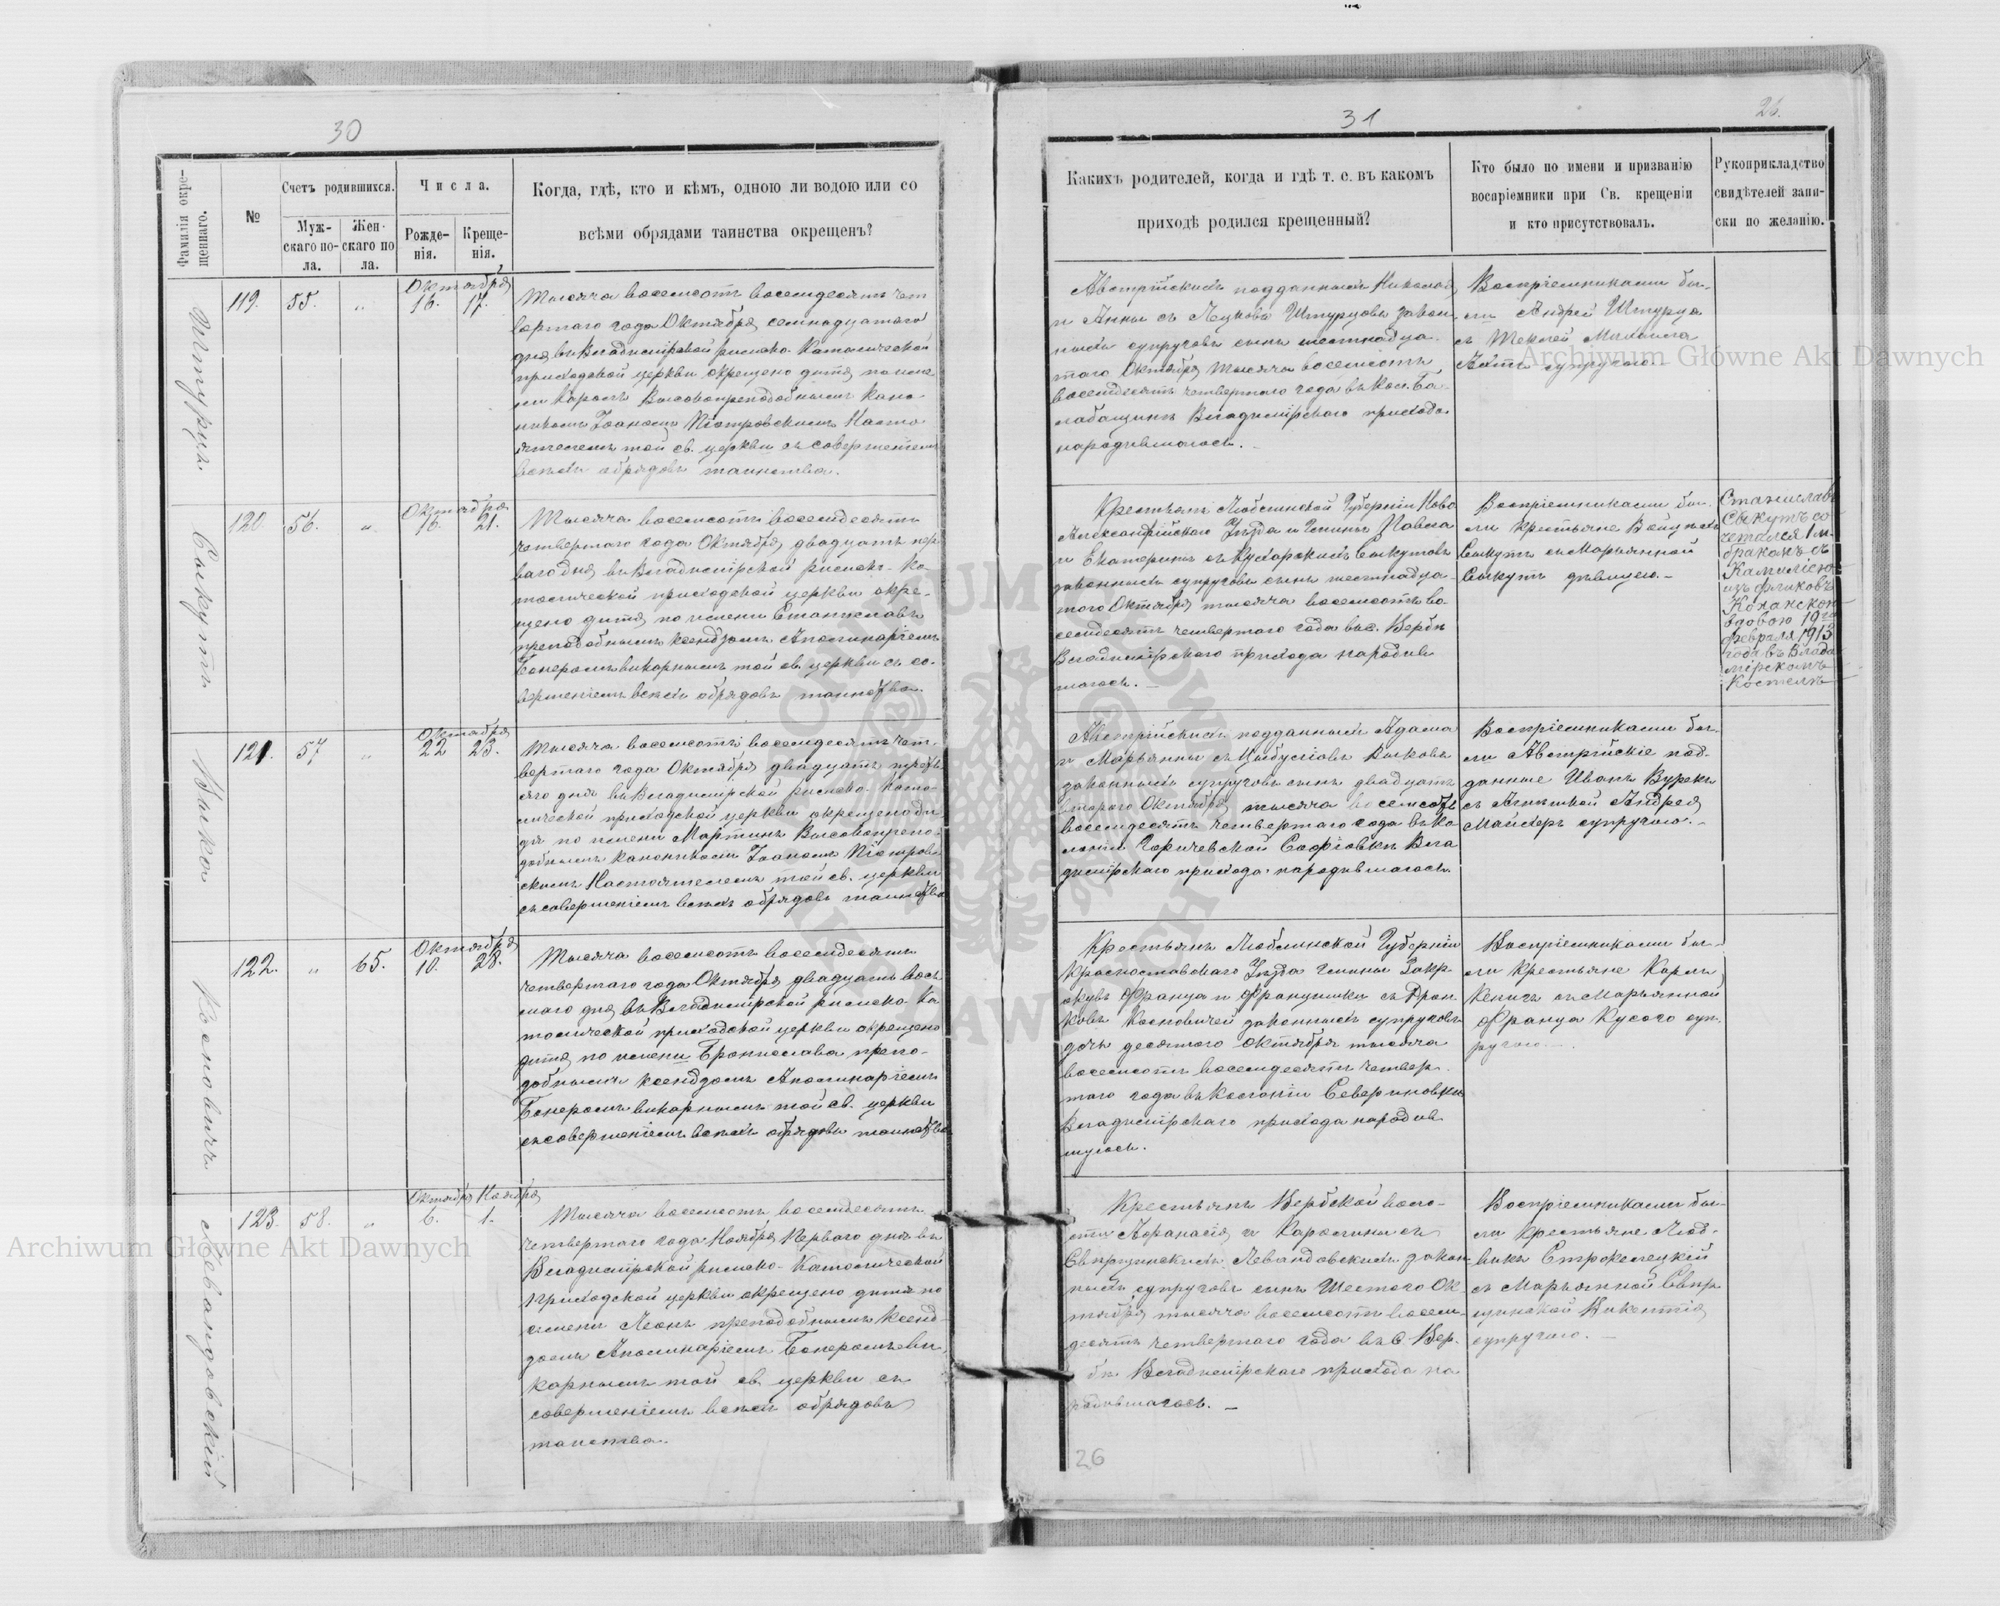 30
Фамилія окре-
щеннаго.
№
Счетъ родившихся.
Муж-
скаго по-
ла.
Жен-
скаго по
ла.
Числа.
Рожде-
нія.
Креще-
нія.
Когда, гдѣ, кто и кѣмъ, одною ли водою или со
всѣми обрядами таинства окрещенъ?
Штурца
119.
55.
„
Октября
16.
17.
Тысяча восемсотъ восемдесятъ чет
вертаго года Октября семнадцатаго
дня въ Владимірской римско-Католической
приходской церкви окрещено дитя по име
ни Кароль Высокопреподобнымъ Кано-
никомъ Іоаномъ Піотровскимъ Насто
ятелемъ той св. церкви съ совершеніемъ
всѣхъ обрядовъ таинства.
Сыкутъ
120
56.
„
Октября
16.
21.
Тысяча восемсотъ восемдесятъ
четвертаго года Октября двадцать пер
ваго дня въ Владимірской римско-Ка-
толической приходской церкви окре-
щено дитя по имени Станиславъ
преподобнымъ ксендзомъ Аполинаріемъ
викарнымъ той св. церкви съ со-
вершеніемъ всѣхъ обрядовъ таинства.
Выка
121.
57
„
Октября
22
23.
Тысяча восемсотъ восемдесятъ чет-
вертаго года Октября двадцать треть
яго дня въ Владимірской римско-Като-
лической приходской церкви окрещено ди
тя по имени Мартинъ Высокопрепо-
добнымъ каноникомъ Іоаномъ Піотров-
скимъ Настоятелемъ той св. церкви
съ совершеніемъ всѣхъ обрядовъ таинства
Косновичъ
122.
„
65.
Октября
10.
28.
Тысяча восемсотъ восемдесятъ
четвертаго года Октября двадцать вось
маго дня въ Владимірской римско-Ка
толической приходской церкви окрещено
дитя по имени Брониславa препо-
добнымъ ксендзомъ Аполинаріемъ
викарнымъ той св. церкви
съ совершеніемъ всѣхъ обрядовъ таинства
Левандовскій
123.
58.
„
Октября Ноября
6.
1.
Тысяча восемсотъ восемдесятъ
четвертаго года Ноября Перваго дня въ
Владимірской римско-Католической
приходской церкви окрещено дитя по
имени Леонъ преподобнымъ Ксенд-
зомъ Аполинаріемъ ви
карнымъ той св. церкви съ
совершеніемъ всѣхъ обрядовъ
таинства.
31
26.
Какихъ родителей, когда и гдѣ т. е. въ какомъ
приходѣ родился крещенный?
Кто было по имени и призванію
воспріемники при Св. крещеніи
и кто присутствовалъ.
Рукоприкладство
свидѣтелей запи-
ски по желанію.
Австрійскихъ подданныхъ Николая
и Анны съ Штурцовъ закон
ныхъ супруговъ сынъ шестнадца-
таго Октября тысяча восемсотъ
восемдесятъ четвертаго года въ кол.
Владимірскаго прихода
народившагося.
Воспріемниками бы-
ли Андрей Штурца
съ Теклей Михаила
супругою.
Крестьянъ Люблинской Губерніи Ново
Александрійскаго Уѣзда и Гмины Павла
и Екатерины съ Сыкутовъ
законныхъ супруговъ сынъ шестнадца-
таго Октября тысяча восемсотъ во-
семдесятъ четвертаго года въ с. Вербѣ
Владимірскаго прихода народив
шагося.
Воспріемниками бы-
ли крестьяне Войцехъ
Сыкутъ съ Марьянной
Сыкутъ дѣвицею.
Станиславъ
Сыкутъ со
четался 1 м.
бракомъ съ
Камиліею
вдовою 19го
февраля 1913
года въ Влади
мірскомъ
Костелѣ
Австрійскихъ подданныхъ Адама
и Марьянны съ Цыбусковъ Выковъ
законныхъ супруговъ сынъ двадцать
втораго Октября тысяча восемсотъ
восемдесятъ четвертаго года въ ко
лоніи Софіовкѣ Вла
димірскаго прихода народившагося.
Воспріемниками бы-
ли Австрійскіе под-
данные Иванъ Вурекъ
съ Андрея
Майхеръ супругою.
Крестьянъ Люблинской Губерніи
Красноставскаго Уѣзда Гмины Закр-
Франца и Францишки съ
Косновичей законныхъ супруговъ
дочь десятаго Октября тысяча
восемсотъ восемдесятъ четвер-
таго года въ колоніи Севериновкѣ
Владимірскаго прихода народив
шуюся.
Воспріемниками бы-
ли крестьяне Карлъ
съ Марьянной
Франца суп-
ругою.
Крестьянъ Вербской воло-
сти Афанасія и Каролины съ
Свирщинскихъ Левандовскихъ закон
ныхъ супруговъ сынъ Шестого Ок
тября тысяча восемсотъ восем-
десятъ четвертаго года въ с. Вер-
бѣ Владимірскаго прихода на
родившагося.
Воспріемниками бы-
ли крестьяне Люд-
викъ Строкелецкій
съ Марьянной Свир
щинской Викентія
супругою.
26
Archiwum Główne Akt Dawnych
Archiwum Główne Akt Dawnych